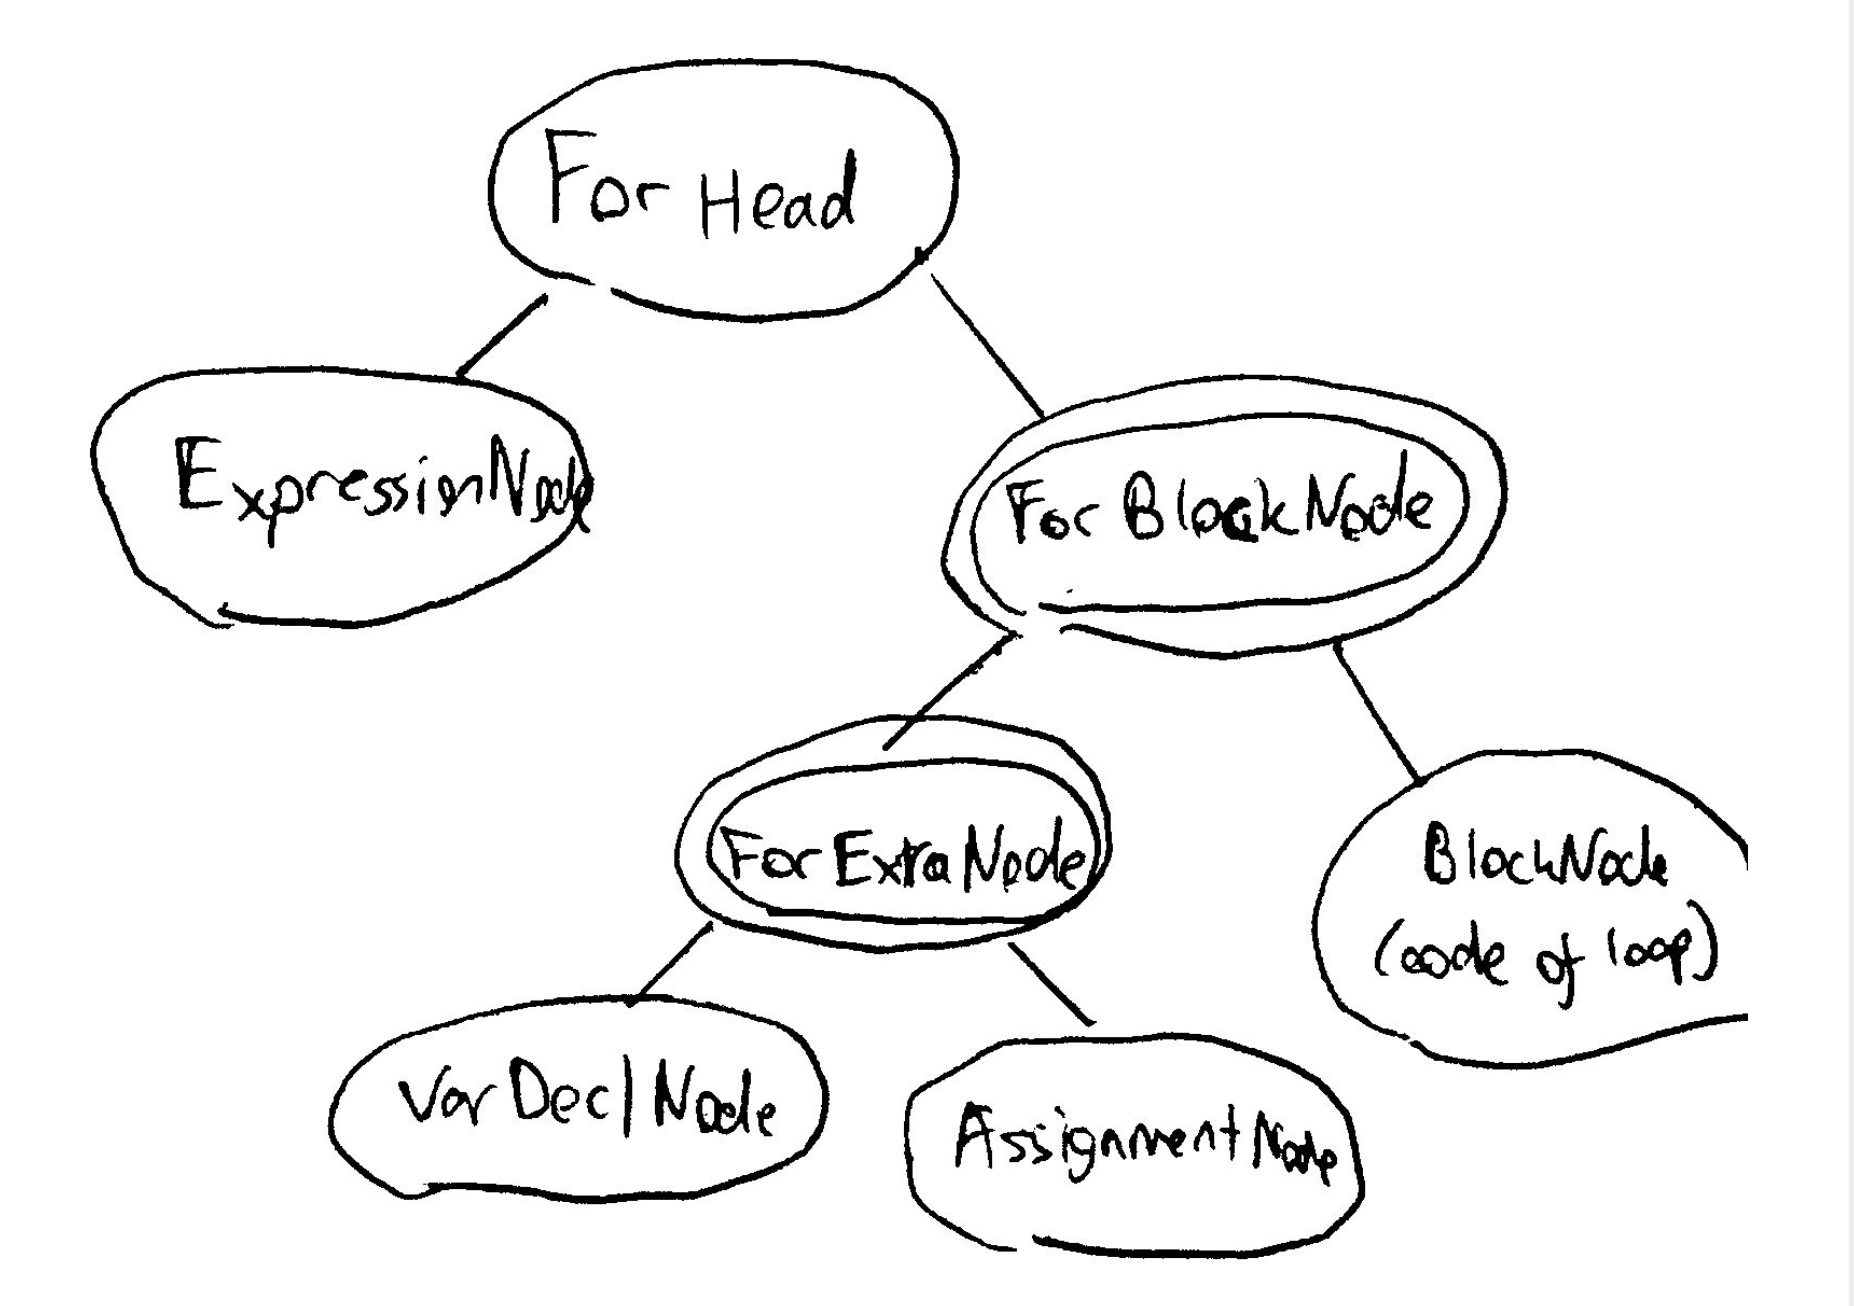 For Head
ExpressionNode
For BlockNode
For Extra Node
BlockNode
(code of loop)
Var Decl Node
Assignment Node